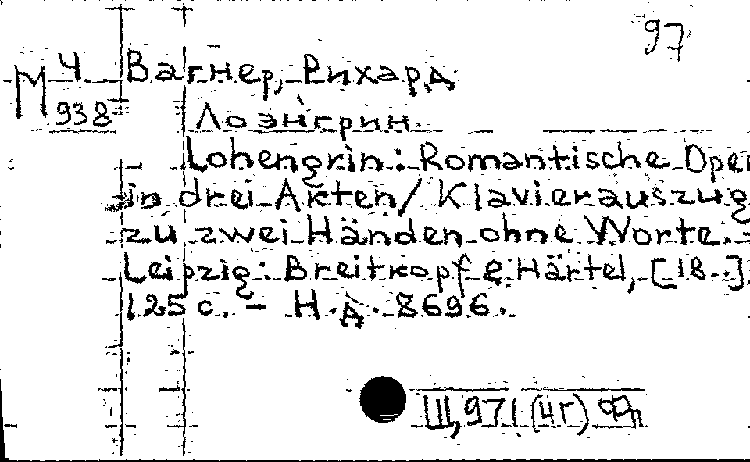 97
М Ч 938
Вагнер, Рихард
Лоэнгрин
Lohengrin: Romantische Oper
in drei Akten/ Klavierauszug
zu zwei Händen ohne Worte. -
Leipzig: Breitkopf & Härtel, [18..].
125 с. - Н.д. 8696.
Щ971(4Г)